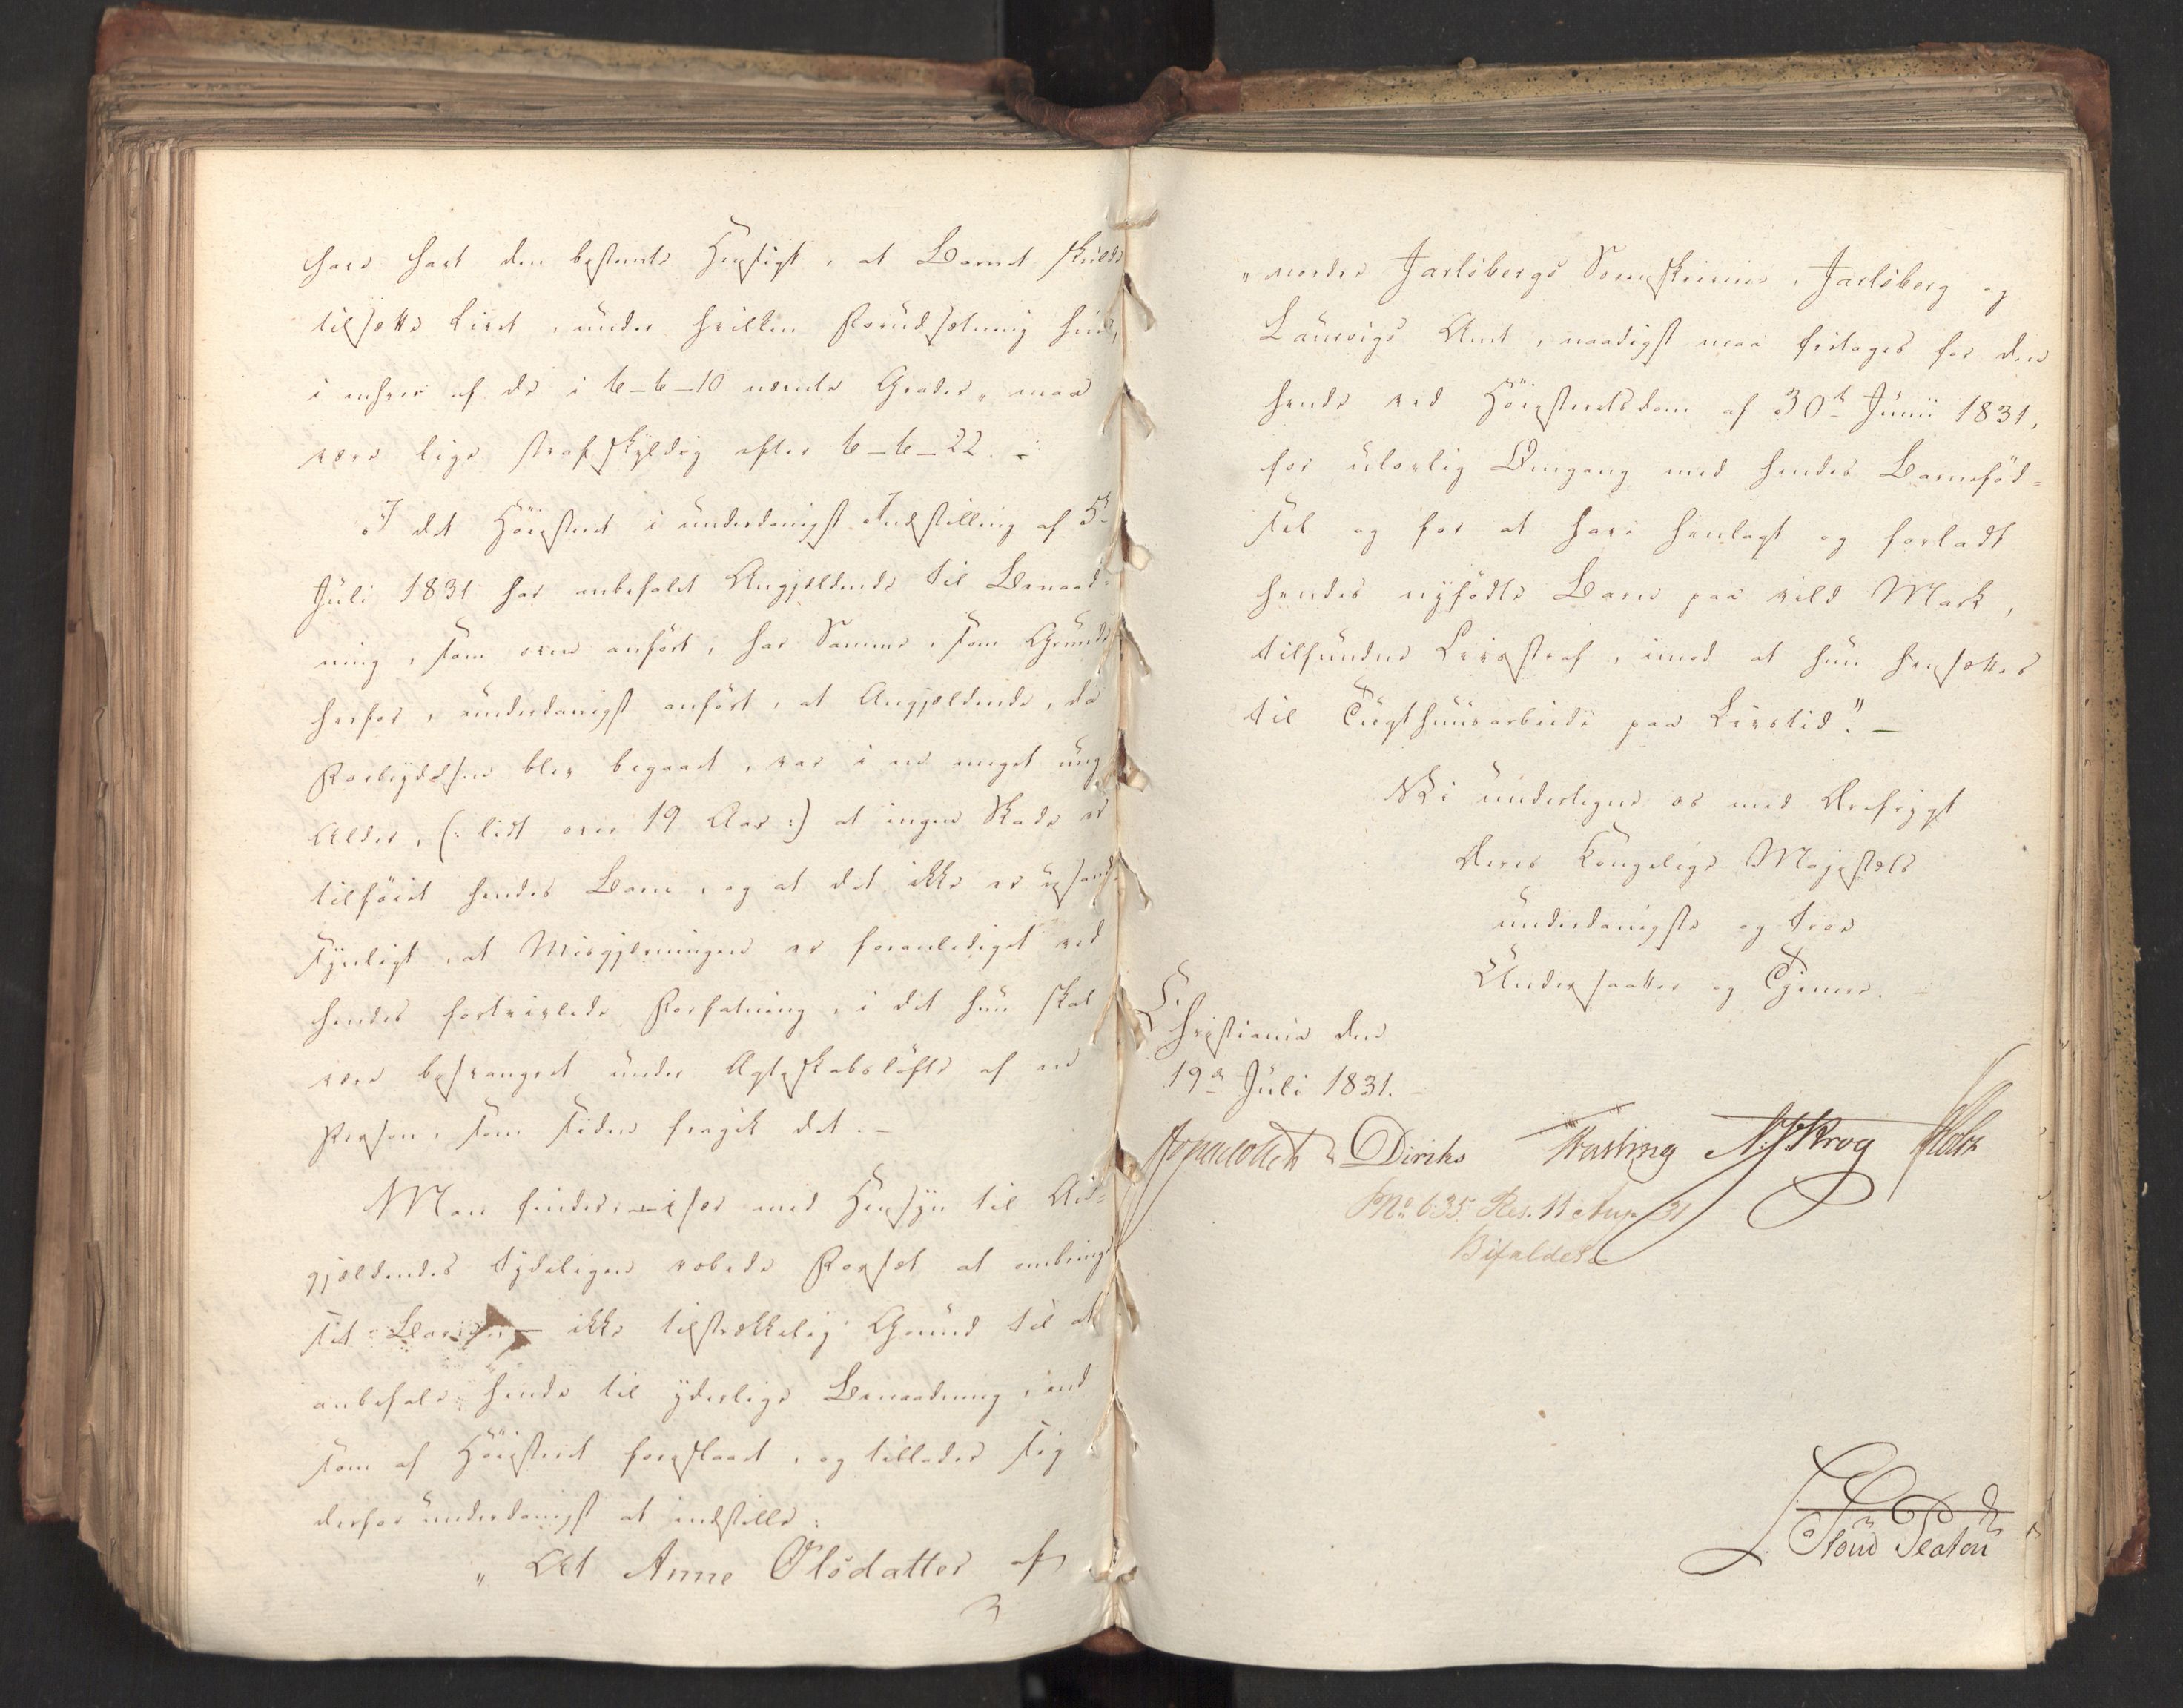 have havt den bestemte Hensigt, at Barnet skulde
tilsætte Livet, under hvilken Forudsætning hun,
i enhver af de i 6-6-10 nævnte Grader, maa
være lige strafskyldig efter 6-6-22. -
I det Höiesteret i underdanigst Indstilling af 5te
Juli 1831 har anbefalet Angjældende til Benaad-
ning, som oven anfört, har Samme, som Grunde
herfor, underdanigst anfört, at Angjældende, da
Forbrydelsen blev begaaet, var i en meget ung
Alder, (: lidt over 19 Aar :) at ingen Skade er
tilföiet hendes Barn, og at det ikke er usand-
synligt, at Misgjerningen er foranlediget ved
hendes fortvivlede Forfatning, i det hun skal
være besvangret under Ægteskabslöfte af en
Person, som siden fragik det. -
Man finder, - især med Hensyn til An-
gjældendes tydeligen robede Forsæt at ombringe
sit Barn - ikke tilstrækkelig Grund til at
anbefale hende til yderlige Benaadning, end
som af Höiesteret foreslaaet, og tillader sig
derfor underdanigst at indstille:
" At Anne Olsdatter af
" nordre Jarlsbergs Sorenskriverie, Jarlsberg og
Laurvigs Amt, naadigst maa fritages for den
hende ved Höiesteretsdom af 30te Junii 1831,
for ulovlig Omgang med hendes Barneföd-
sel og for at have henlagt og forladt
hendes nyfödte Barn paa vild Mark,
tilfundne Livsstraf, imod at hun hensættes
til Tugthuusarbeide paa Livstid." -
Vi undertegne os med Ærefrygt
Deres Kongelige Majestæts
underdanigste og troe
Undersaatter og Tjenere. -
Christiania den
19de Juli 1831. -
Jonas Collett Diriks Fasting N J Krog Holst
No 635 Res. 11 Aug. 31
Bifaldes